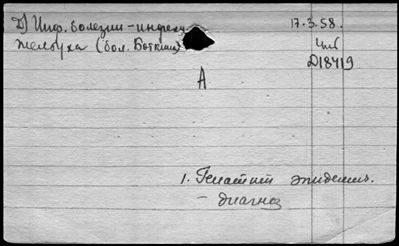 Д) Инф. болезни - инфекц.
желтуха (бол. Боткина)
17.3.58.
Д18419
А
1. Гепатит эпидемич.
- диагноз